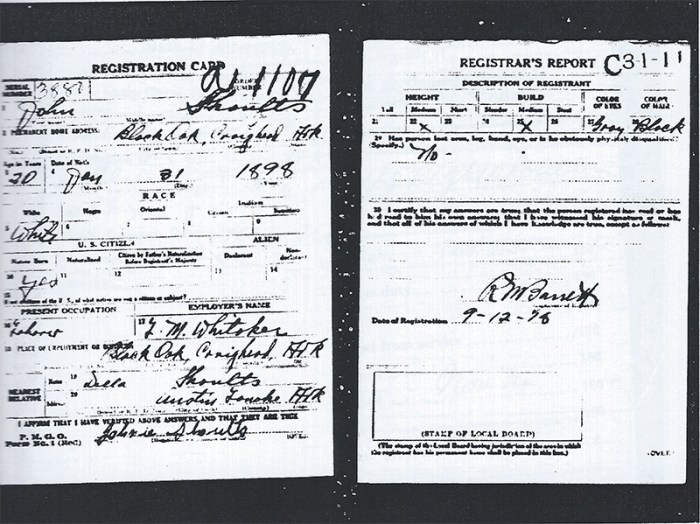 REGISTRATION CARD
SERIAL NUMBER 3887 ORDER NUMBER
1 John Shoults
2 PERMANENT HOME ADDRESS: Black Oak, Craighead Ark
Age in Years Date of Birth
20 Jan 31 1898
RACE
White Negro Oriental Indian
Citizen Noncitizen
5 White 6 7 8 9
U. S. CITIZEN ALIEN
Native Born Naturalized Citizen by Father's Naturalization Before Registrant's Majority Declarant Non-declarant
10 Yes 11 12 13 14
15 If not citizen of the U. S., of what nation are you a citizen or subject?
PRESENT OCCUPATION EMPLOYER'S NAME
16 Laborer 17 J. M. Whitaker
18 PLACE OF EMPLOYMENT OR BUSINESS
Black Oak, Craighead, Ark
NEAREST RELATIVE
Name 19 Della Shoults
20 Austin Lonoke Ark
I AFFIRM THAT I HAVE VERIFIED ABOVE ANSWERS AND THAT THEY ARE TRUE
P. M. G. O.
Form No. 1 (Red) Johnie Shoults
REGISTRAR'S REPORT C31-11
DESCRIPTION OF REGISTRANT
HEIGHT BUILD COLOR OF EYES COLOR OF HAIR
Tall Medium Short Slender Medium Stout
21 22 x 23 24 25 x 26 27 Gray 28 Black
29 Has person lost arm, leg, hand, eye, or is he obviously physically disqualified?
(Specify.) No
30 I certify that my answers are true; that the person registered has read or has
had read to him his own answers; that I have witnessed his signature or mark,
and that all of his answers of which I have knowledge are true, except as follows:
R M Barrett
Date of Registration 9-12-18
(STAMP OF LOCAL BOARD)
(The stamp of the Local Board having jurisdiction of the area in which
the registrant has his permanent home shall be placed in this box.)
(OVER)